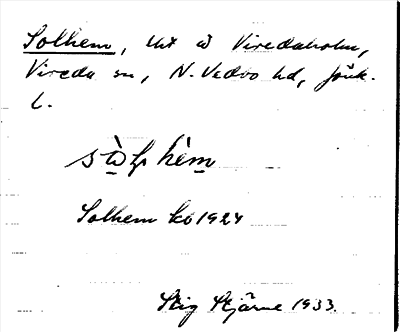 Solhem, lht u Viredaholm,
Vireda sn, N. Vedbo hd, Jönk.
l.
Solhem kb 1924
Stig Stjärne 1933.